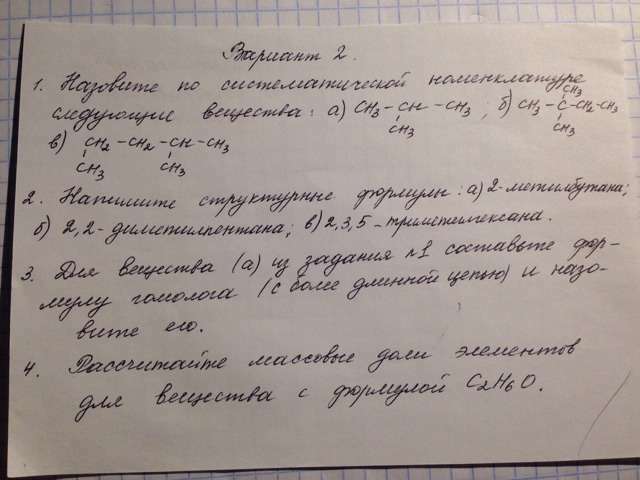 Вариант 2.
1. Назовите по систематической номенклатуре
следующие вещества: а) CH3-CH-CH3; б) CH3-C-CH2-CH3
CH3
CH3
CH3
в) CH2-CH2-CH-CH3
CH3 CH3
2. Напишите структурные формулы: а) 2-метилбутана;
б) 2,2-диметилпентана; в) 2,3,5-триметилгексана.
3. Для вещества (а) из задания №1 составьте фор-
мулу гомолога (с более длинной цепью) и назо-
вите его.
4. Рассчитайте массовые доли элементов
для вещества с формулой C2H6O.